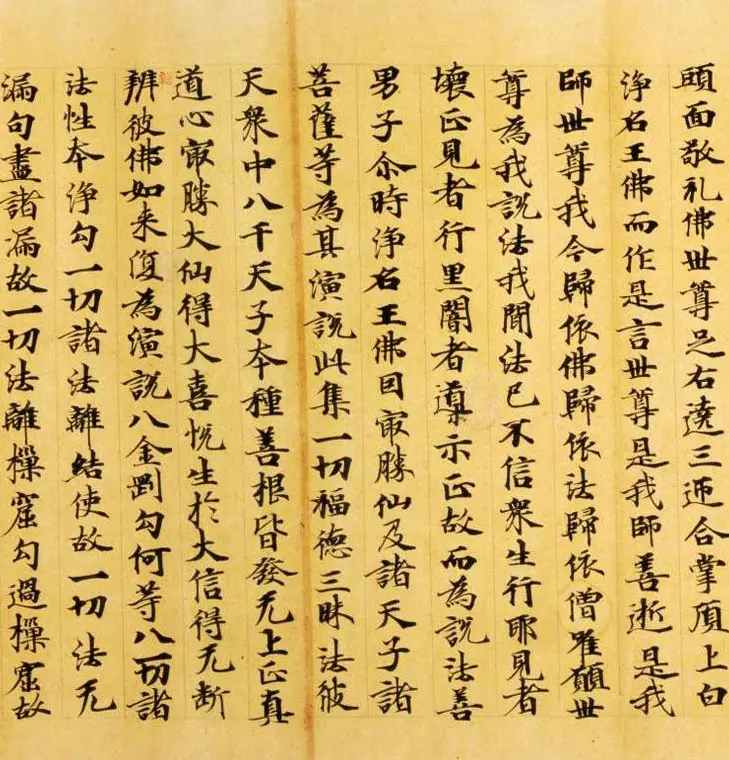 頭面敬礼佛世尊足右遶三迊合掌頂上白
淨名王佛而作是言世尊是我師善逝是我
師世尊我今歸依佛歸依法歸依僧唯願世
尊為我説法我聞法已不信衆生行耶見者
壞正見者行黒闇者導示正故而為説法善
男子尒時淨名王佛因冣勝仙及諸天子諸
菩薩等為其演説此集一切福德三昧法彼
天衆中八千天子夲種善根皆發无上正真
道心冣勝大仙得大喜恱生於大信得无断
辨彼佛如来復為演説八金剛勾何等八一切諸
法性夲淨勾一切諸法離結使故一切法无
漏句盡諸漏故一切法離樔窟勾過樔窟故